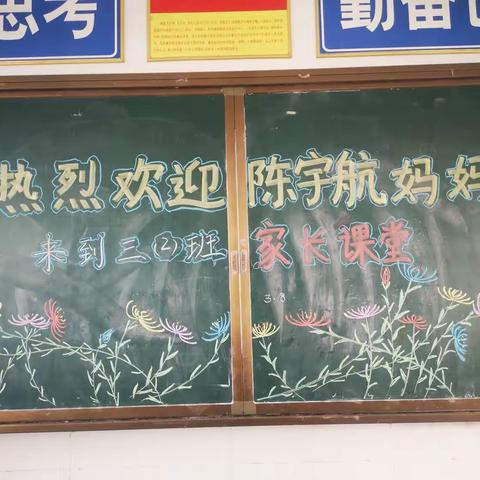 思考
勤奋
热烈欢迎陈宇航妈妈
来到三②班家长课堂
3.8